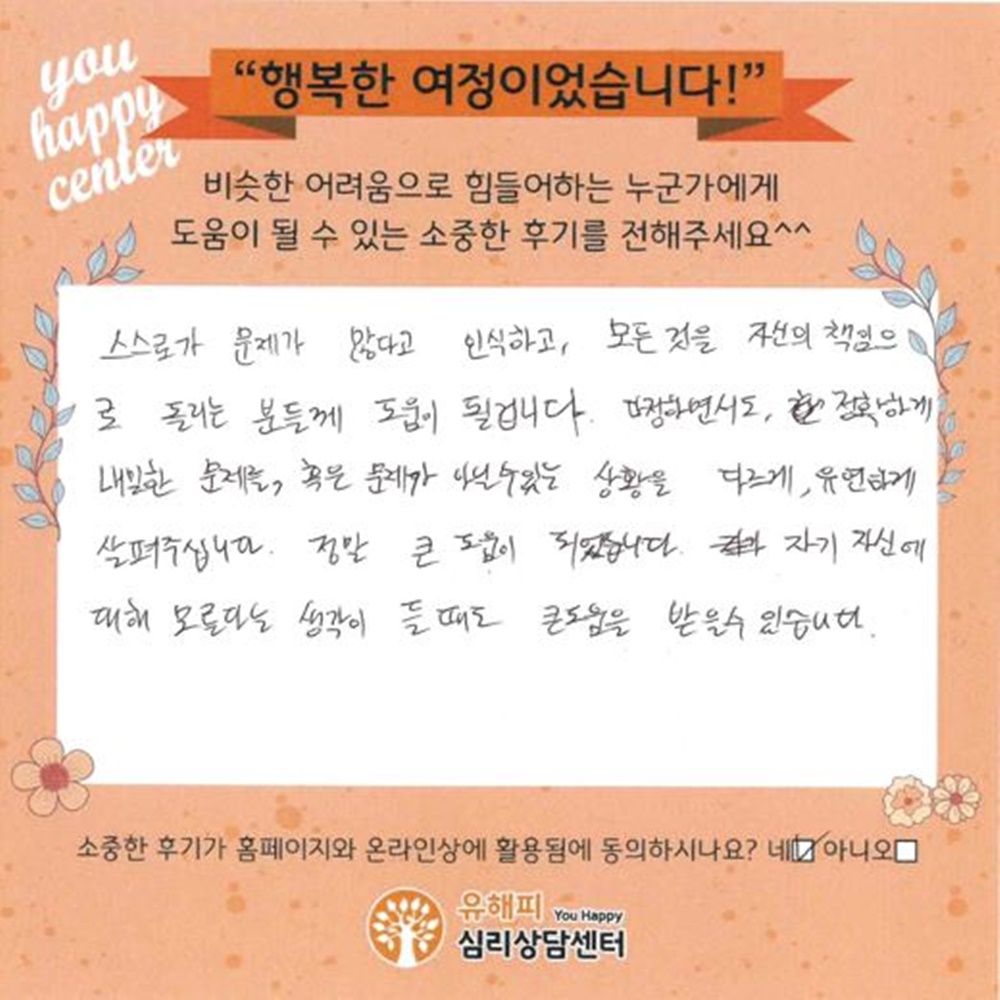 you
happy
center
“행복한 여정이었습니다!”
비슷한 어려움으로 힘들어하는 누군가에게
도움이 될 수 있는 소중한 후기를 전해주세요^^
스스로가 문제가 많다고 인식하고, 모든 것을 자신의 책임으
로 돌리는 분들께 도움이 될겁니다. 다정하면서도, 정확하게
내밀한 문제를, 혹은 문제가 아닐수있는 상황을 다르게, 유연하게
살펴주십니다. 정말 큰 도움이 되었습니다. 자기 자신에
대해 모른다는 생각이 들 때도 큰도움을 받을수 있습니다.
소중한 후기가 홈페이지와 온라인상에 활용됨에 동의하시나요? 네 아니오
유해피 You Happy
심리상담센터